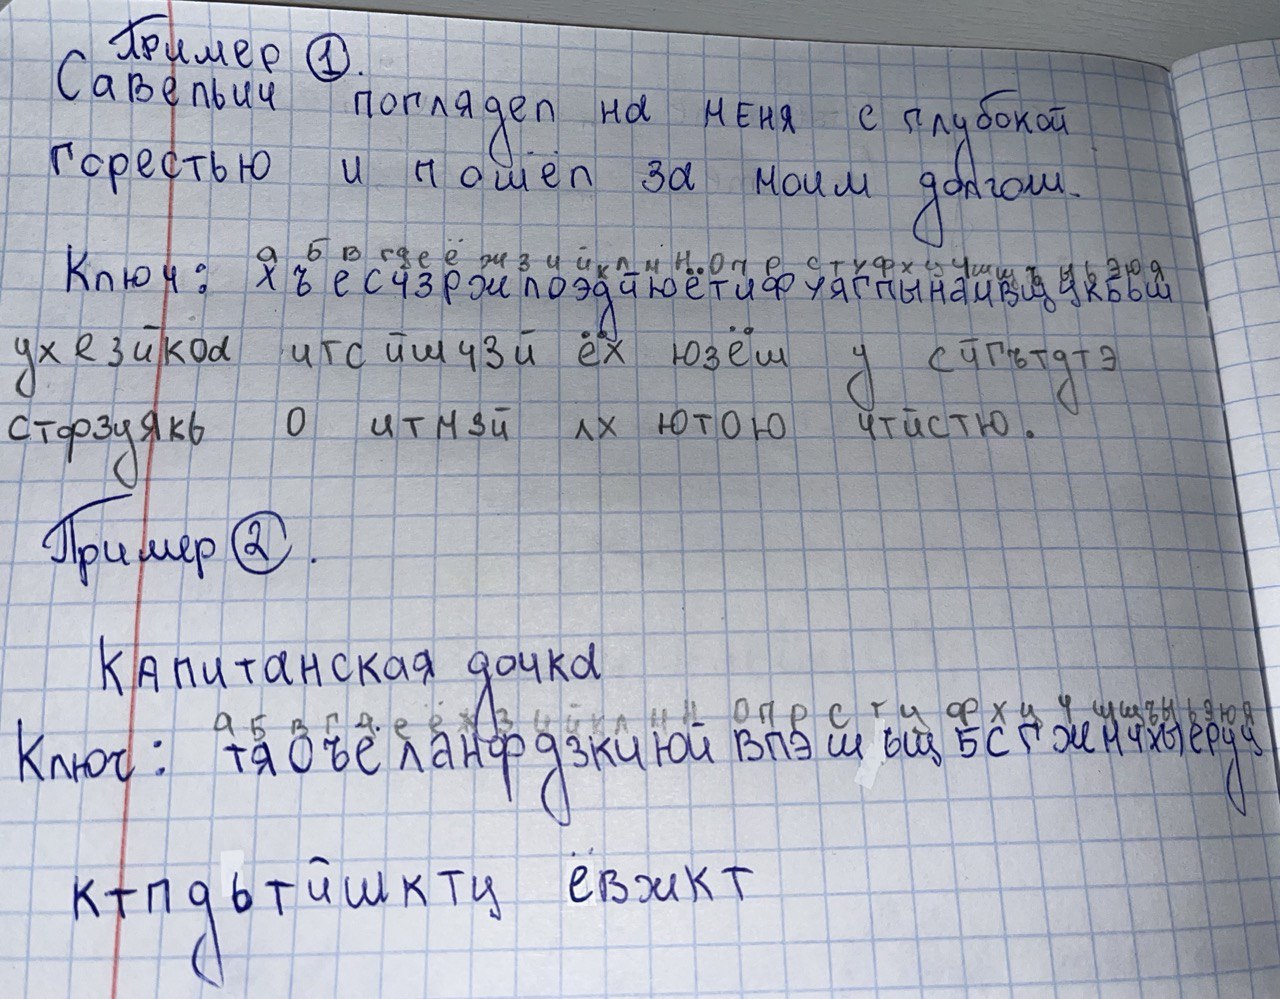 Пример ①.
Савельич поглядел на меня с глубокой
горестью и пошёл за моим долгом.
а б в г д е ё ж з и й к л м н о п р с т у ф х ц ч ш щ ъ ы ь э ю я
Ключ: хъесчзржпоэдйюётифуяглынаивщцкбьш
ухезйкоа итсйшчзй ёх юзёш у сйгътдтэ
стфзуякь о итнзй лх ютою чтйстю.
Пример ②.
Капитанская дочка
а б в г д е ё ж з и й к л м н о п р с т у ф х ц ч ш щ ъ ы ь э ю я
Ключ: тяоъёланфдзкиюйвпэшьщбсгжмчхыеруц
ктпдьтйшктц ёвжкт